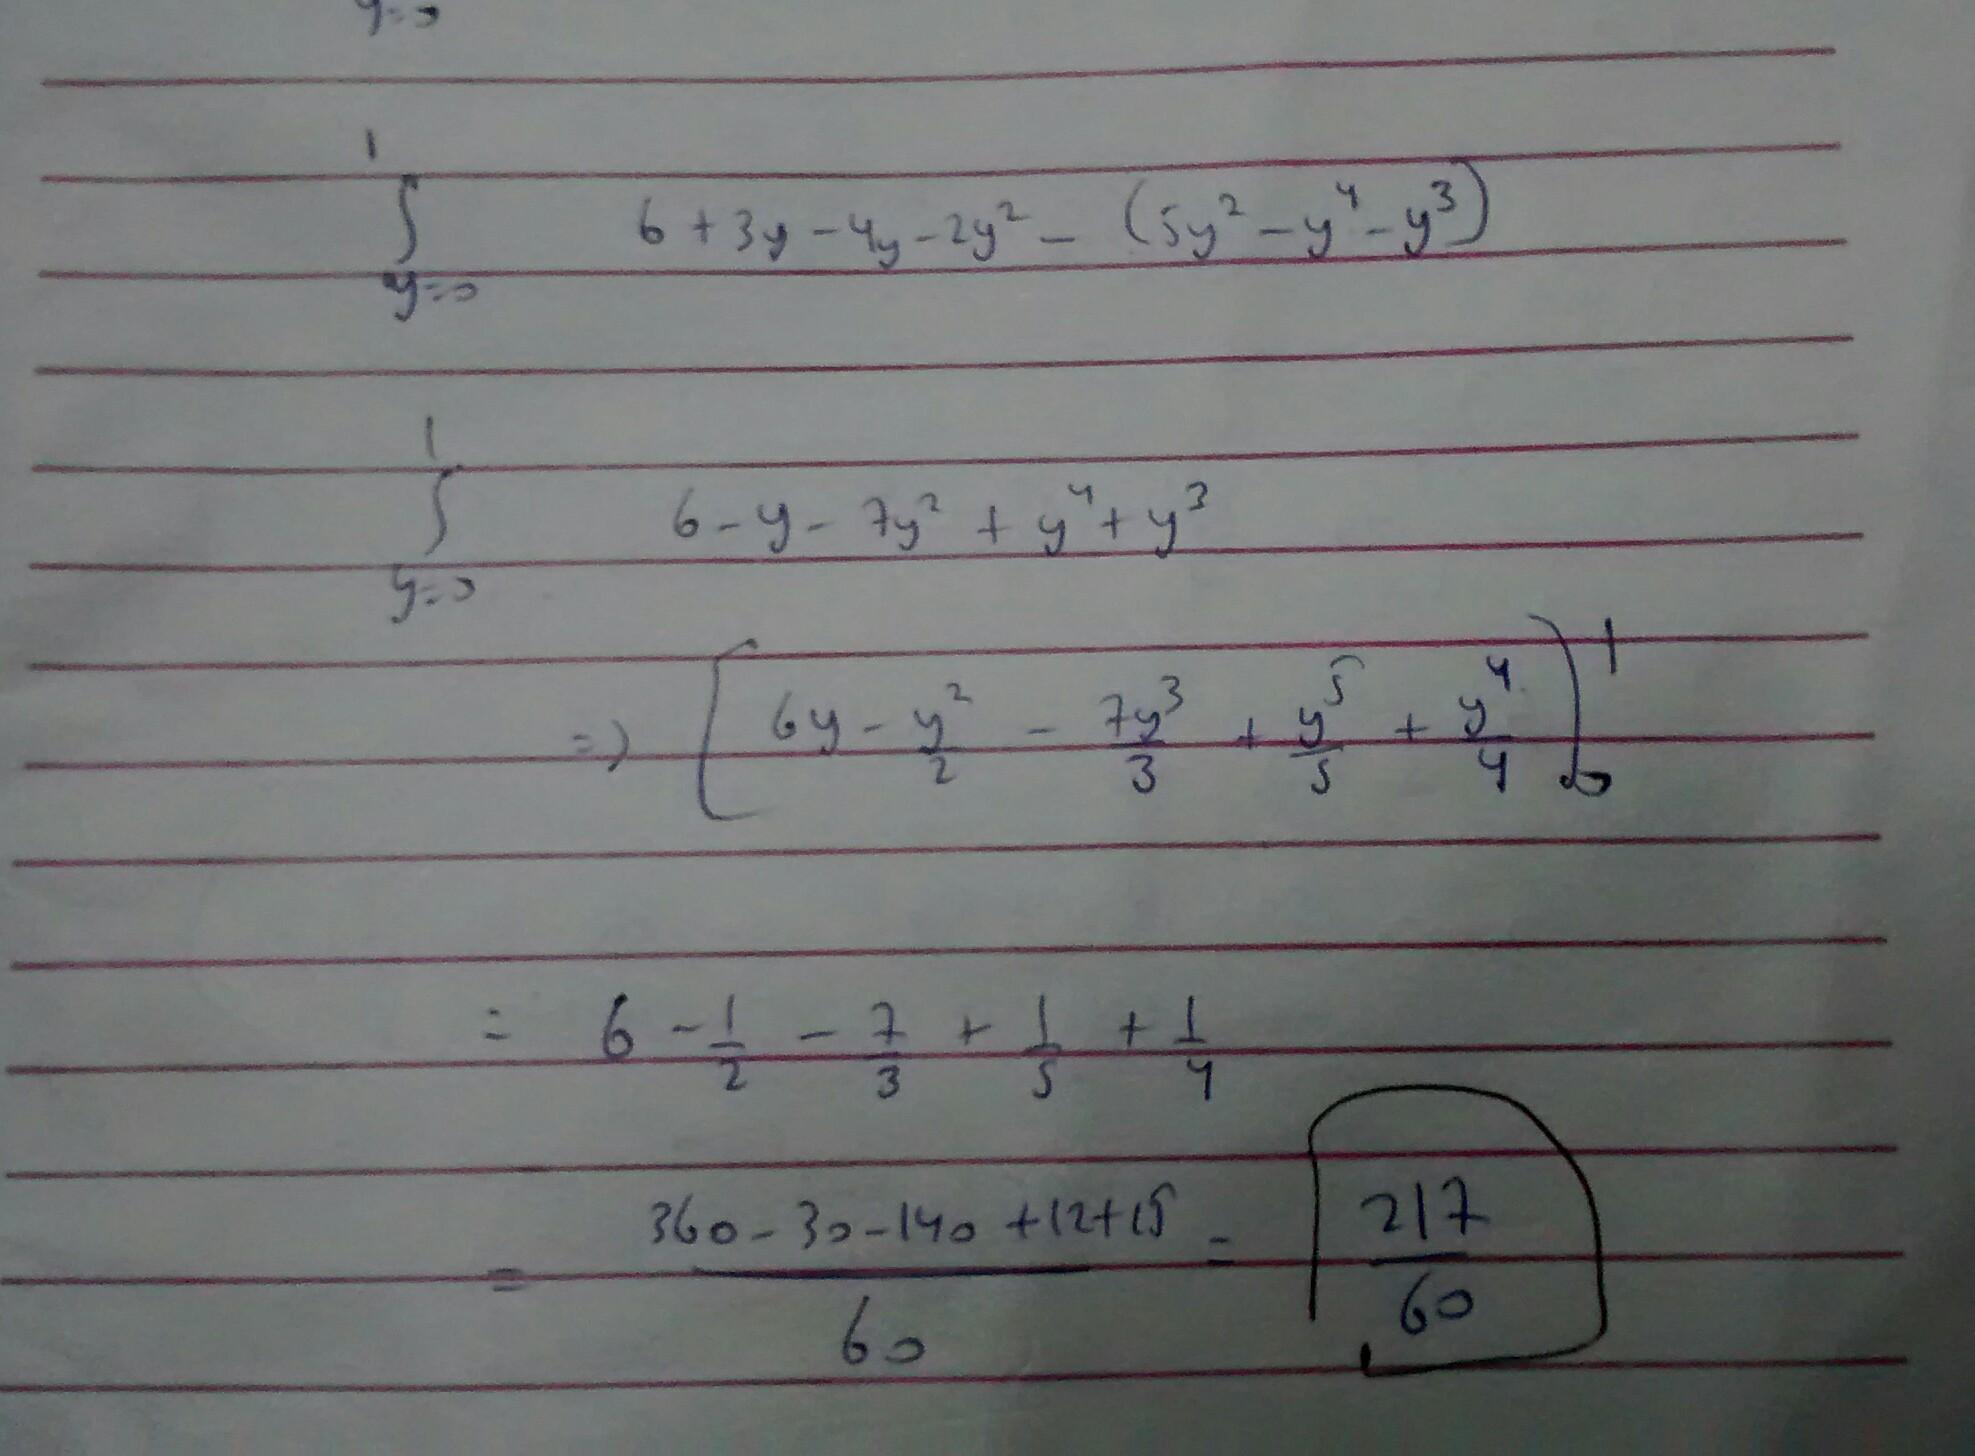 y=0
1
∫ 6 + 3y - 4y - 2y² - (5y² - y⁴ - y³)
y=0
1
∫ 6 - y - 7y² + y⁴ + y³
y=0
=> [6y - y²/2 - 7y³/3 + y⁵/5 + y⁴/4]₀¹
= 6 - 1/2 - 7/3 + 1/5 + 1/4
= (360 - 30 - 140 + 12 + 15)/60 = 217/60